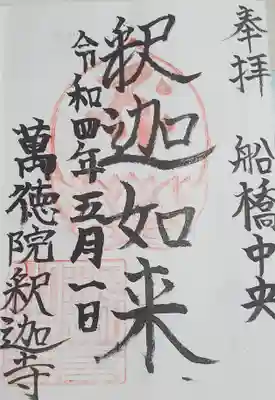 奉拝　船橋中央
釈迦如来
令和四年五月一日
萬徳院釈迦寺